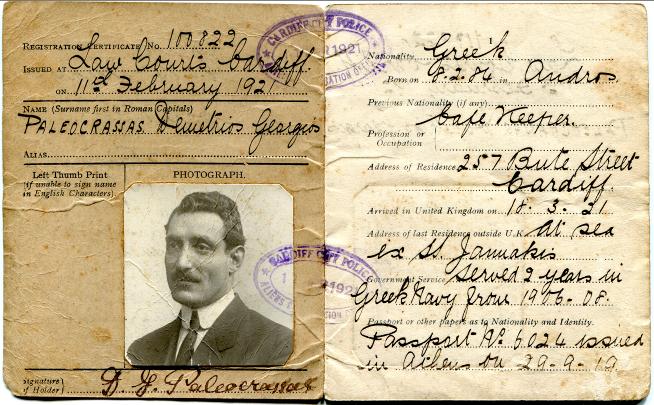 REGISTRATION CERTIFICATE No. 100822
ISSUED AT Law Courts Cardiff.
ON 11th February 1921
NAME (Surname first in Roman Capitals)
PALEOCRASSAS Demetrios Georgios
ALIAS
Left Thumb Print
(if unable to sign name
in English Characters)
PHOTOGRAPH.
CARDIFF CITY POLICE
1921
CARDIFF CITY POLICE
ALIENS
1921
Signature
of Holder
D. G. Paleocrassas
Nationality Greek
Born on 8.2.84 in Andros
Previous Nationality (if any)
Profession or
Occupation
Cafe Keeper.
Address of Residence 257 Bute Street
Cardiff.
Arrived in United Kingdom on 18.3.21
Address of last Residence outside U.K. At sea
ex St. Jannakis
Government Service Served 2 years in
Greek Navy from 1906-08.
Passport or other papers as to Nationality and Identity.
Passport No 6024 issued
in Athens on 29-9-19.